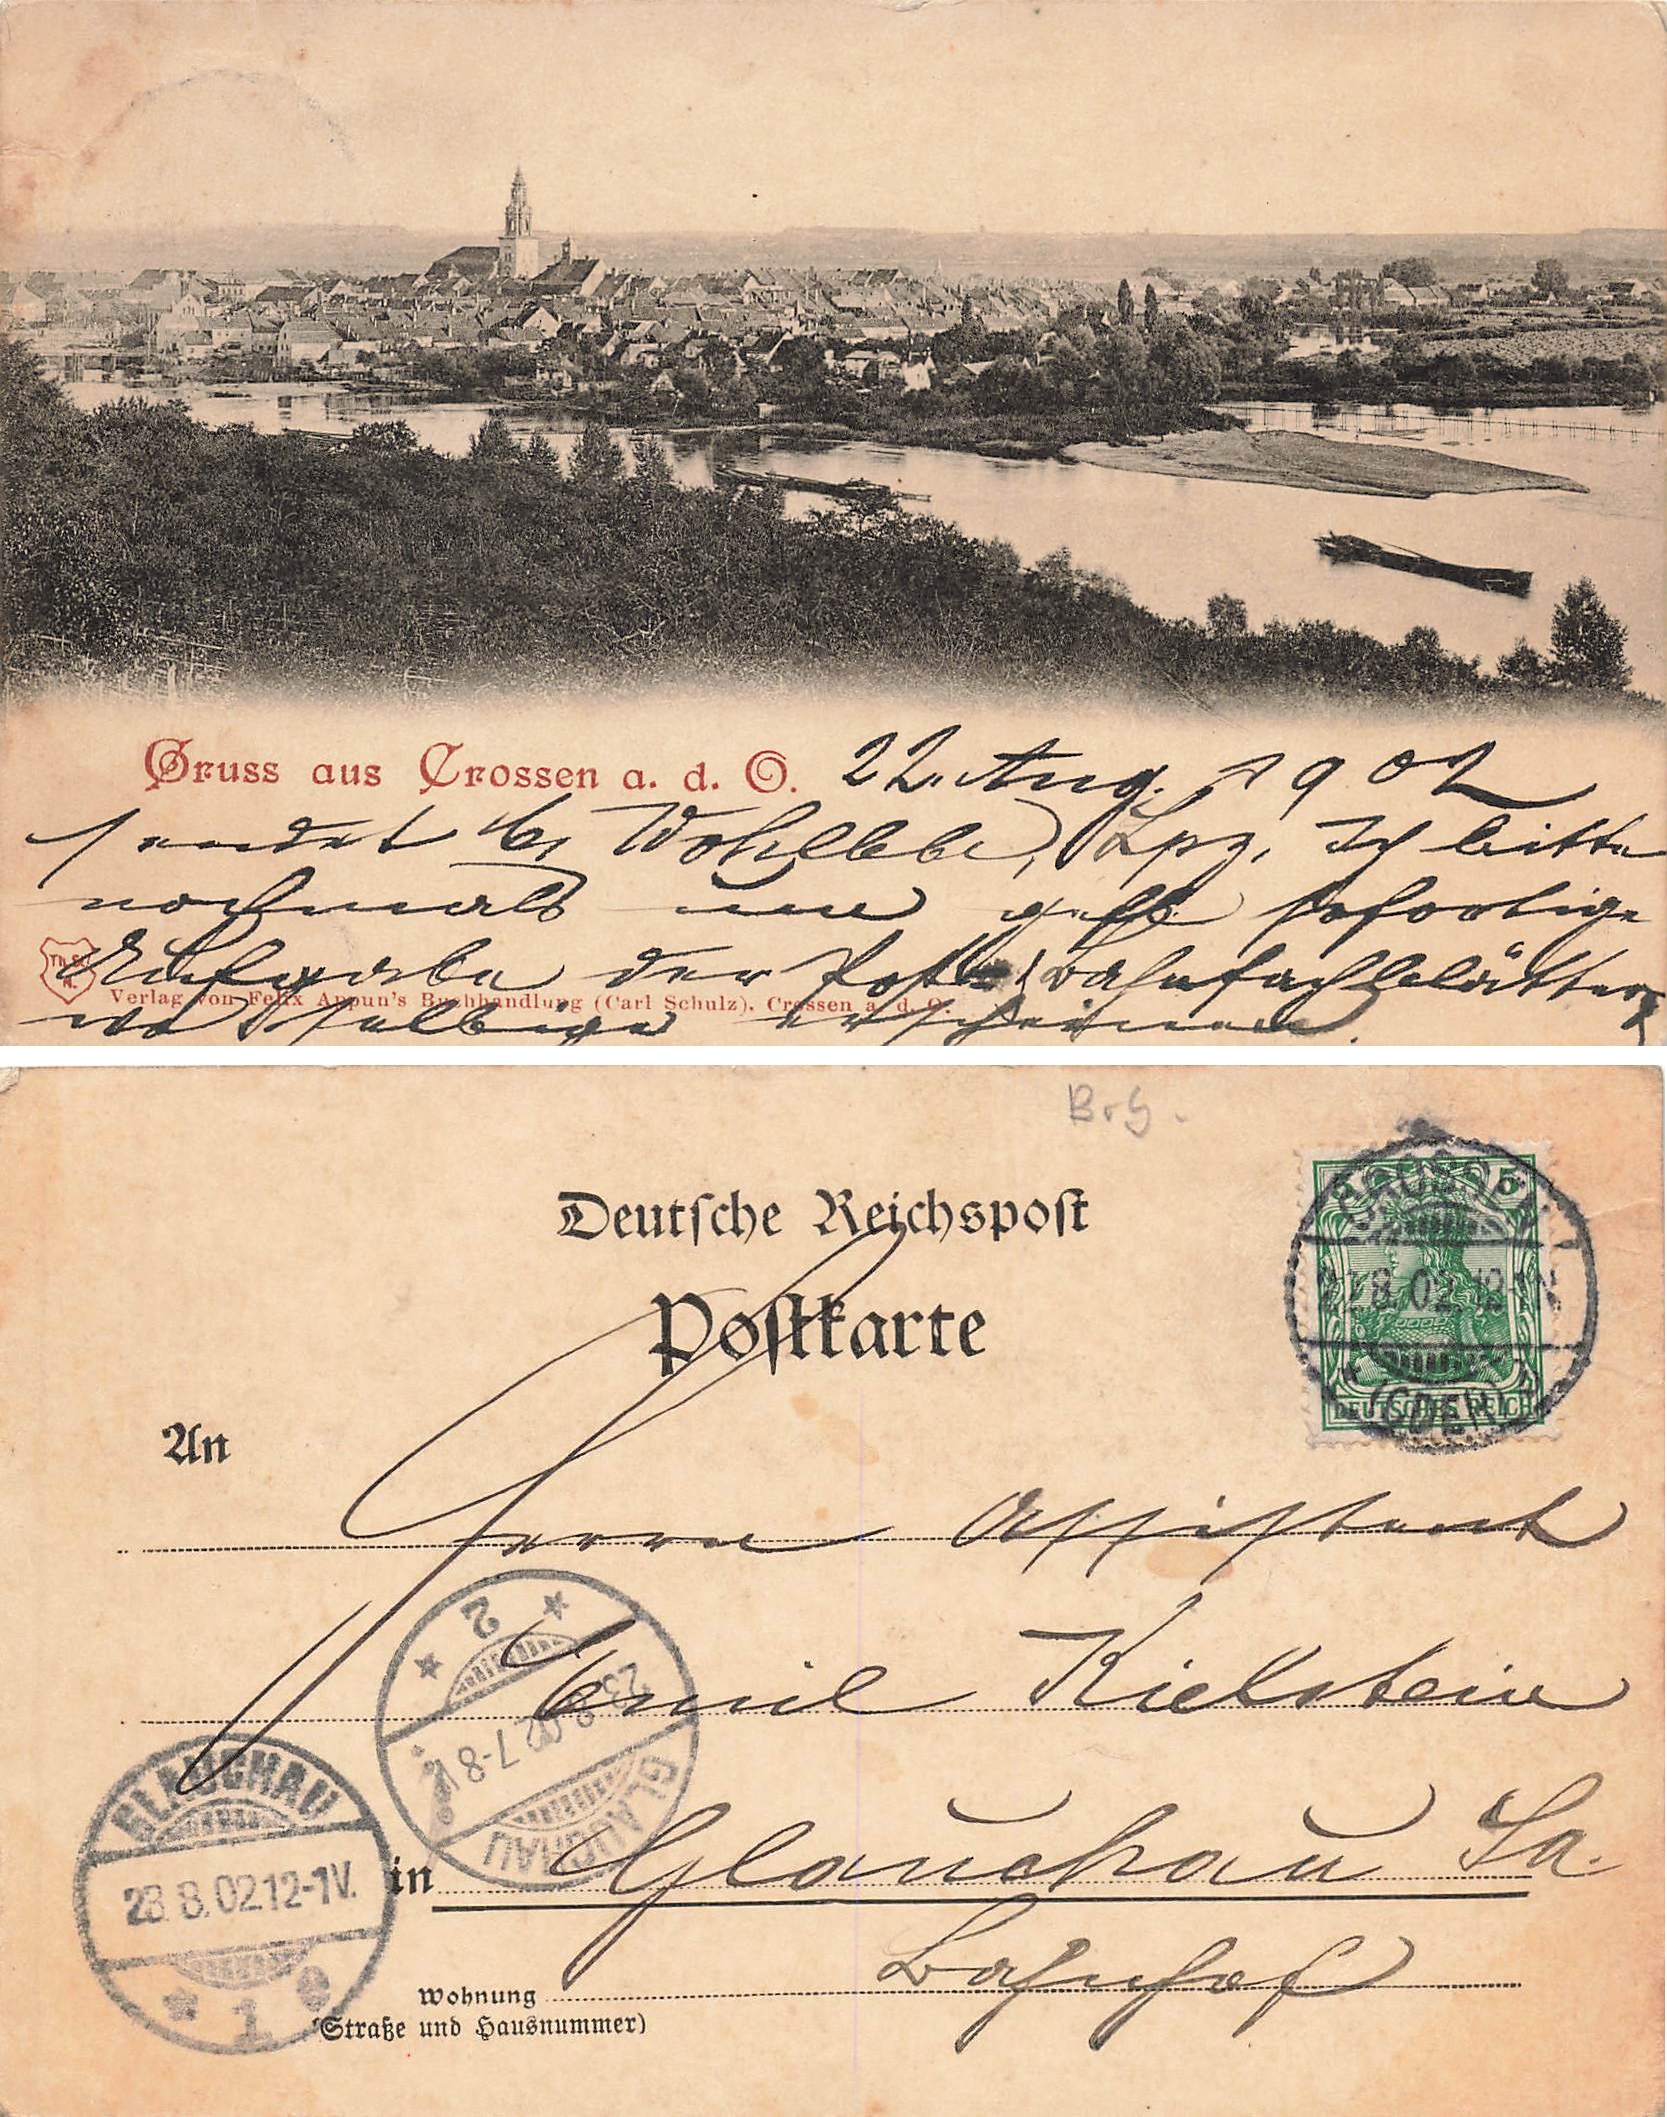 Gruss aus Crossen a. d. O. 22. Aug. 1902
sendet Wohllebe, Lpzg. Ich bitte
nochmals um gefl. sofortige
Aufgabe der Post- Bahnfachblätter,
wo selbige erscheinen.
Verlag von Felix Appun's Buchhandlung (Carl Schulz), Crossen a. d. O.
Deutsche Reichspost
Postkarte
5
DEUTSCHES REICH
CROSSEN
8.02.12-1N
(ODER)
An
Herrn Assistent
Emil Kielstein
in Glauchau Sa.
Bahnhof
Wohnung
(Straße und Hausnummer)
GLAUCHAU
23.8.02 7-8V.
2
GLAUCHAU
23.8.02 12-1V.
1